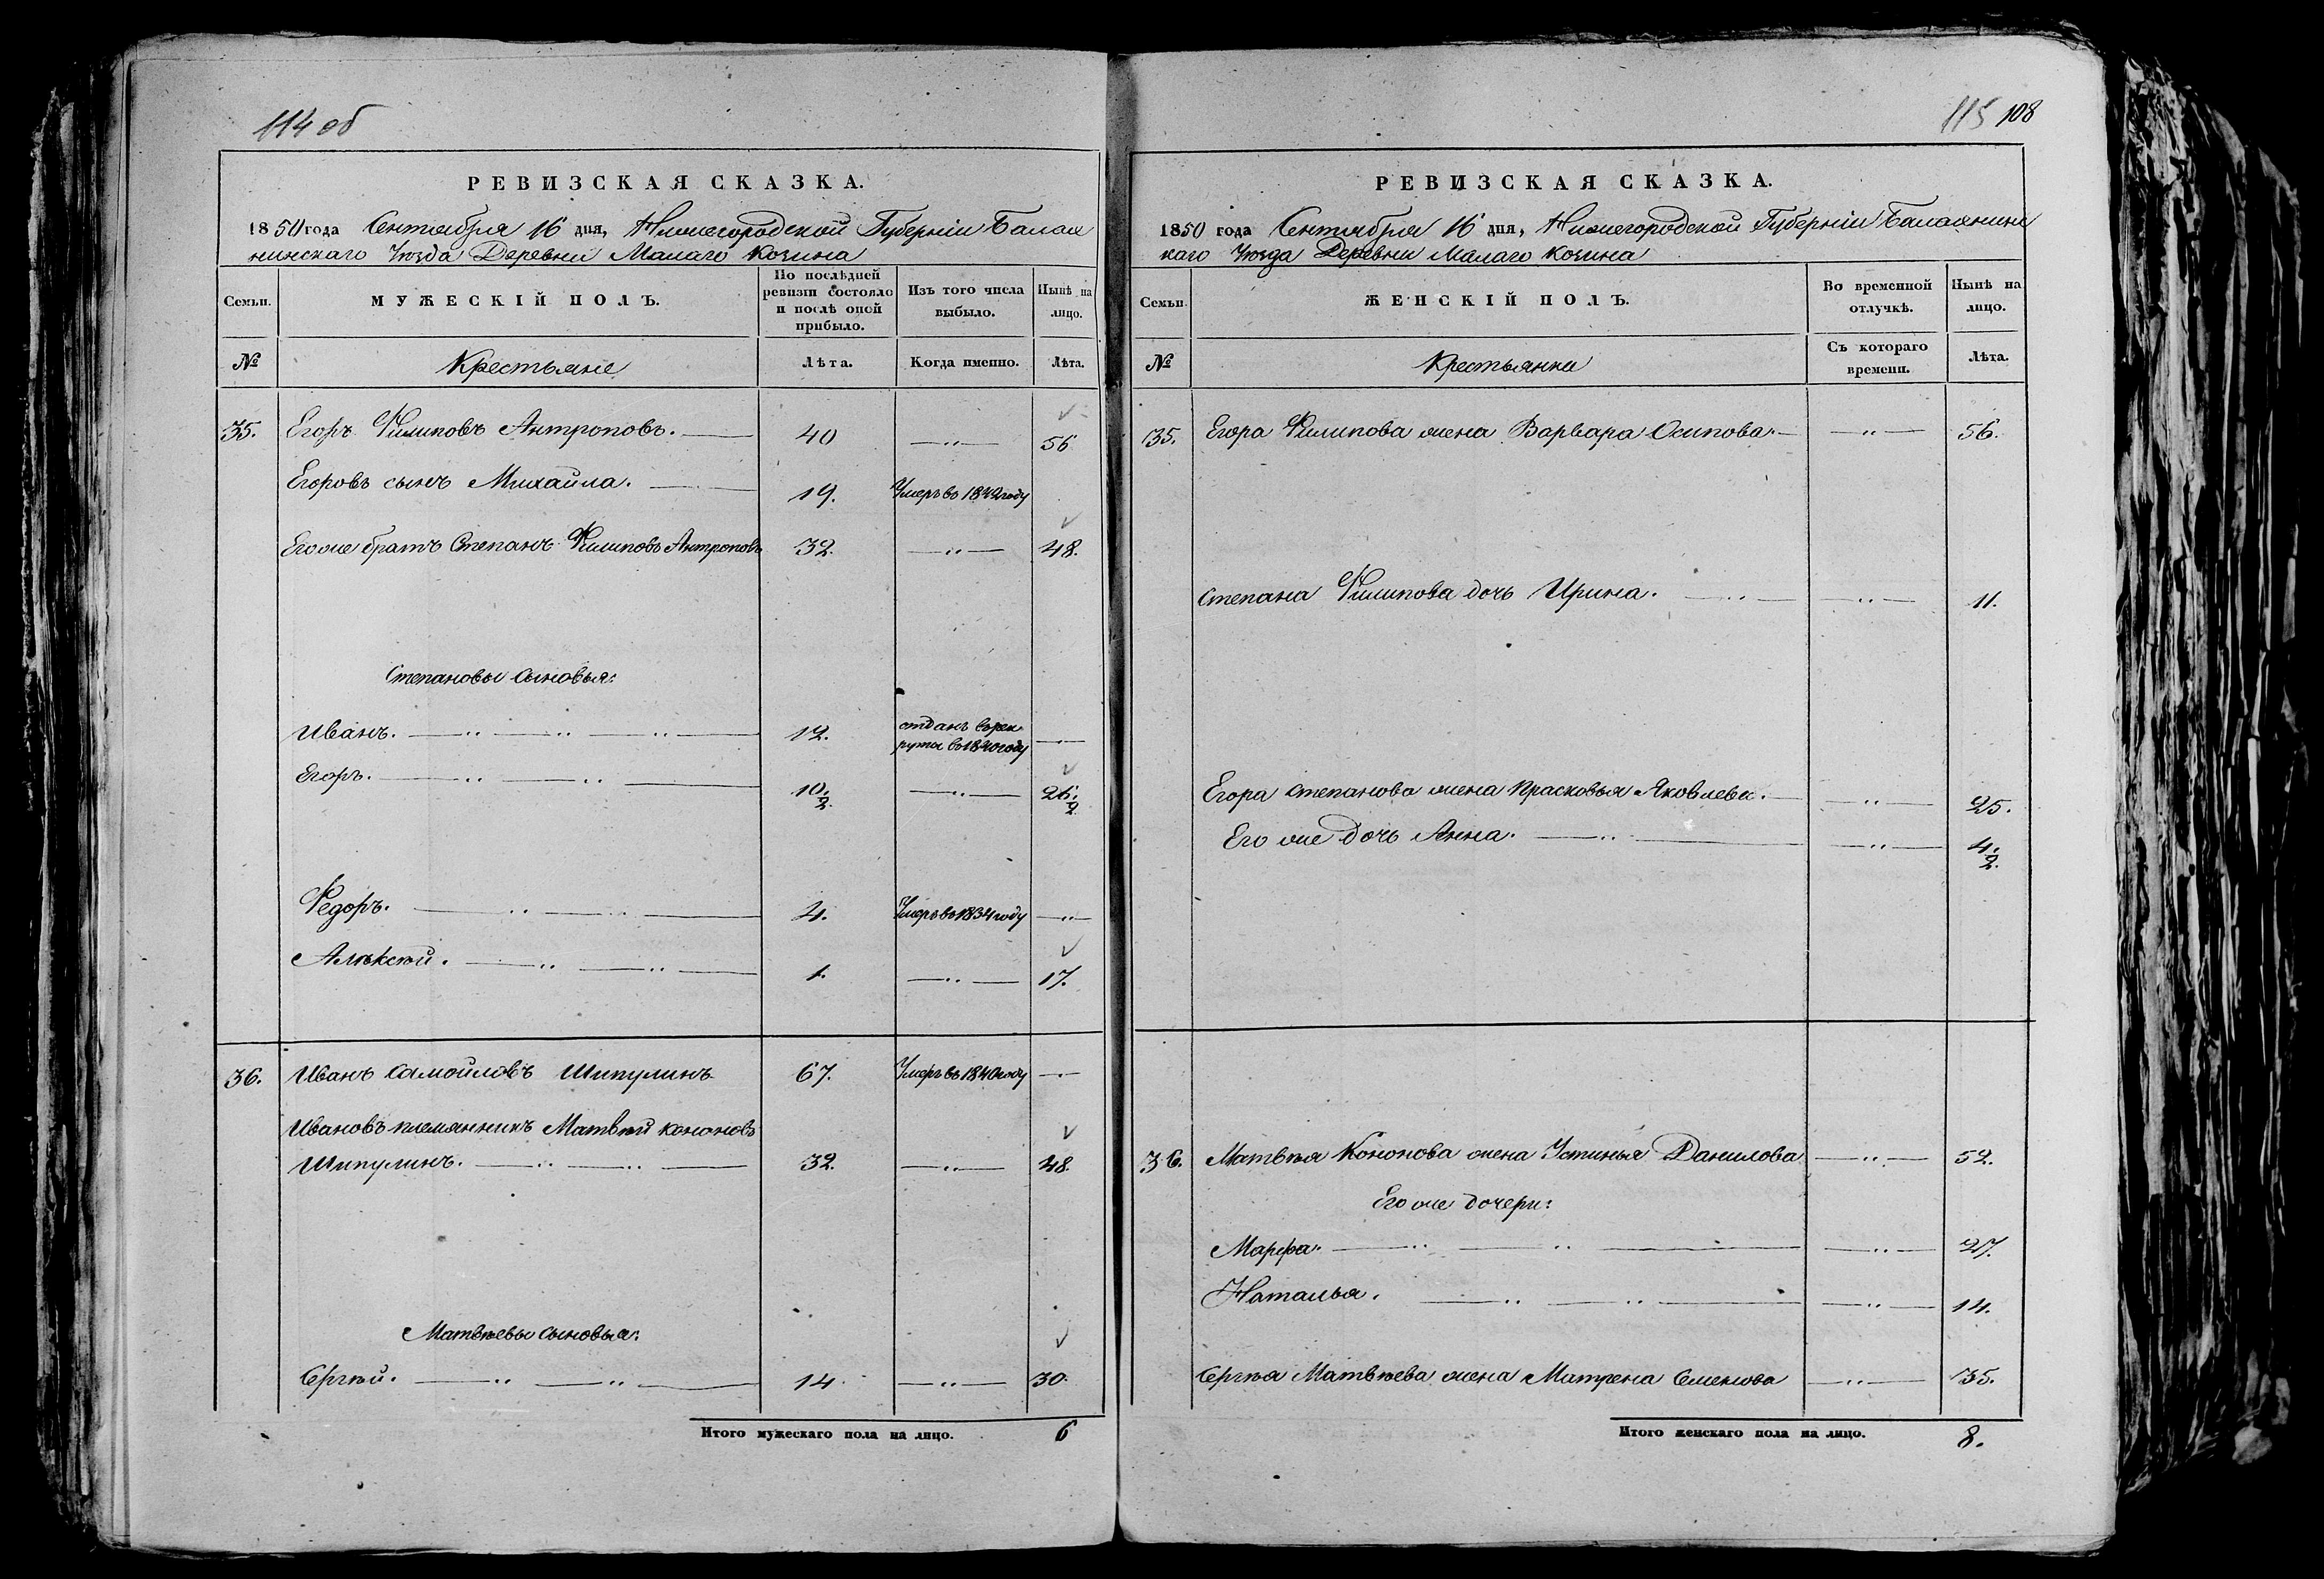 114 об
РЕВИЗСКАЯ СКАЗКА.
1850 года Сентября 16 дня, Нижегородской Губерніи Балах
нинскаго Уѣзда Деревни Малаго Козина
Семьи.
МУЖЕСКІЙ ПОЛЪ.
По послѣдней ревизіи состояло и послѣ оной прибыло.
Изъ того числа выбыло.
Нынѣ на лицо.
№
Крестьяне
Лѣта.
Когда именно.
Лѣта.
35. Егоръ Филиповъ Антроповъ. 40 56
Егоровъ сынъ Михайла. 19. Умеръ во 1842 году
Его же братъ Степанъ Филиповъ Антроповъ 32. 48.
Степановы сыновья:
Иванъ. 12. отданъ в рек-
руты въ 1840 году
Егоръ. 10. 26.
2. 2
Федоръ. 4. Умеръ въ 1834 году
Алѣксѣй. 1. 17.
36. Иванъ Самойловъ Шипулинъ 67. Умеръ въ 1840 году
Ивановъ племянникъ Матвѣй Кононовъ
Шипулинъ. 32. 48.
Матвѣевы сыновья:
Сергѣй. 14. 30.
Итого мужескаго пола на лицо. 6
115 108
РЕВИЗСКАЯ СКАЗКА.
1850 года Сентября 16 дня, Нижегородской Губерніи Балахнинс
каго Уѣзда Деревни Малаго Козина
Семьи.
ЖЕНСКІЙ ПОЛЪ.
Во временной отлучкѣ.
Нынѣ на лицо.
№
Крестьянки
Съ котораго времени.
Лѣта.
35. Егора Филипова жена Варвара Осипова. 56.
Степана Филипова дочь Ирина. 11.
Егора Степанова жена Прасковья Яковлева. 25.
Его же дочь Анна. 4.
2.
36. Матвѣя Кононова жена Устинья Данилова 52.
Его же дочери:
Марфа. 27.
Наталья. 14.
Сергѣя Матвѣева жена Матрена Семенова 35.
Итого женскаго пола на лицо. 8.